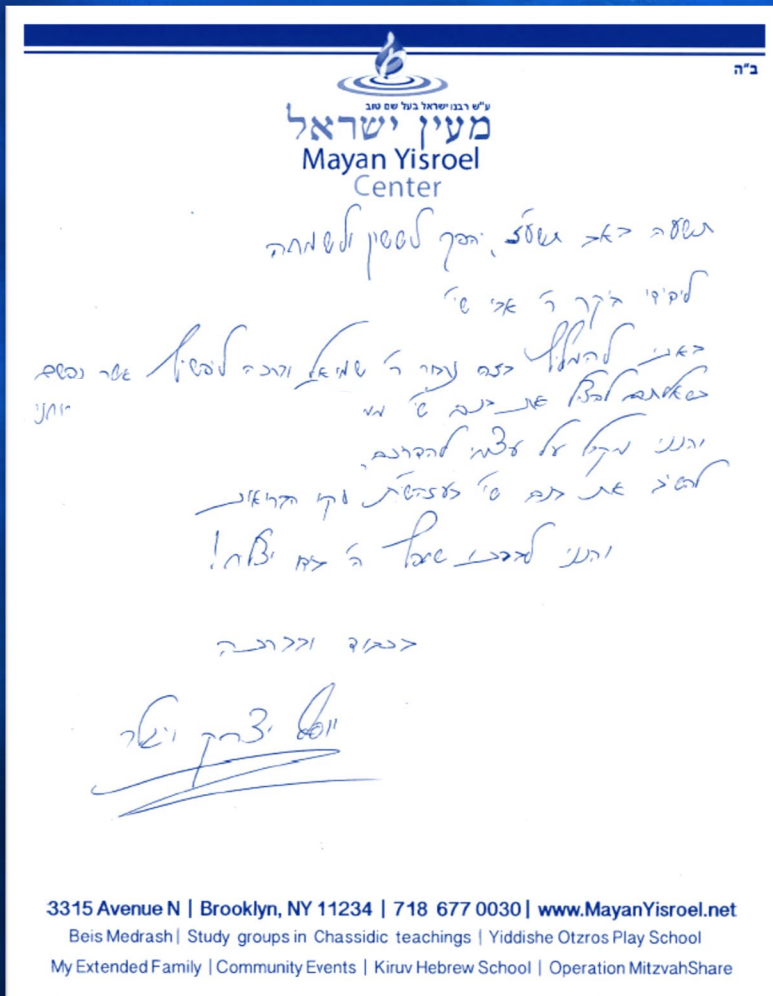 ב"ה
ע"ש רבנו ישראל בעל שם טוב
מעין ישראל
Mayan Yisroel
Center
תשעה באב תשע"ז, יהפך לששון ולשמחה
לידידי היקר ר' אבי שי'
באתי להמליץ בעד ר' אשר נפשם
בשאלתם להציל את בנם שי'
והנני מקבל על עצמי להדריכם
להשיב את בנם שי' בעזהשי"ת
והנני לברכו ה' יצליח!
בכבוד ובברכה
יוסף יצחק
3315 Avenue N | Brooklyn, NY 11234 | 718 677 0030 | www.MayanYisroel.net
Beis Medrash | Study groups in Chassidic teachings | Yiddishe Otzros Play School
My Extended Family | Community Events | Kiruv Hebrew School | Operation MitzvahShare